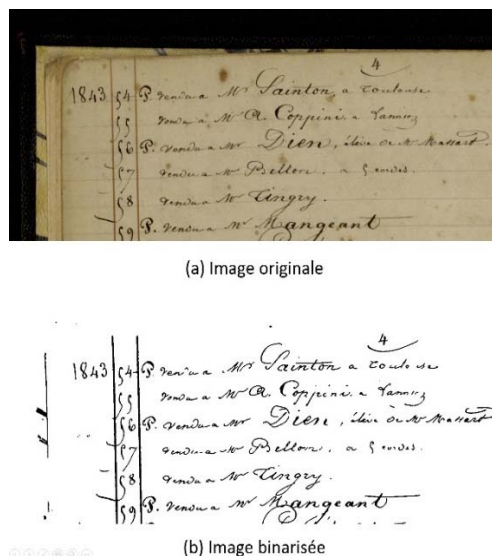 4
1843 54 P. vendu a Mr Sainton a Toulouse
55 vendu a Mr A. Coppini a
56 P. vendu a Mr Dien, élève de Mr Massart.
57 vendu a Mr Bellon, a 5 cordes.
58 vendu a Mr Tingry.
59 P. vendu a Mr Mangeant
(a) Image originale
4
1843 54 P vendu a Mr Sainton a Toulouse
55 vendu a Mr A. Coppini a
56 P. vendu a Mr Dien, élève de Mr Massart
57 vendu a Mr Bellon, a 5 cordes.
58 vendu a Mr Tingry.
59 P. vendu a Mr Mangeant
(b) Image binarisée